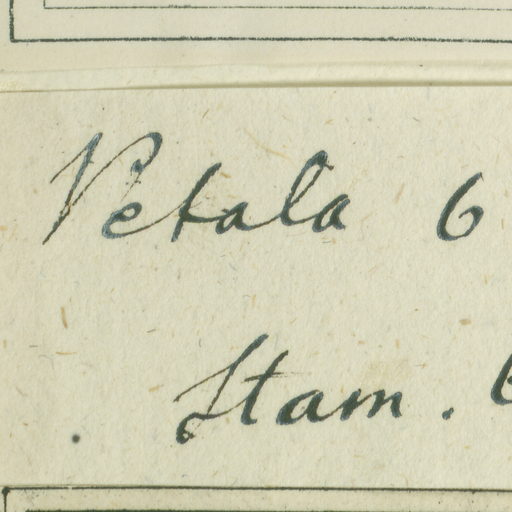 Petala 6
Stam. 6